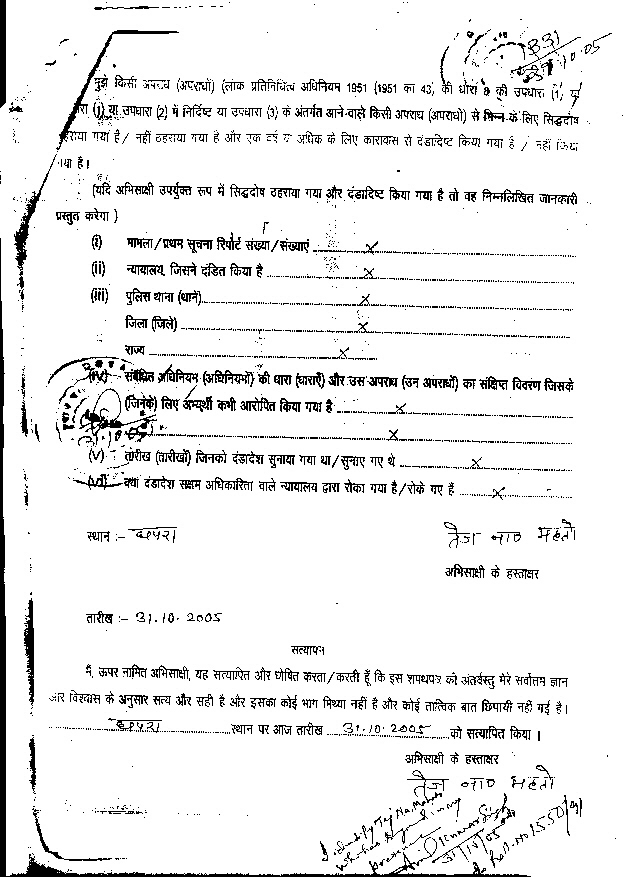 31.10.05
मुझे किसी अपराध (अपराधों) (लोक प्रतिनिधित्व अधिनियम 1951 (1951 का 43) की धारा 8 की उपधारा (1) या
(1) या उपधारा (2) में निर्दिष्ट या उपधारा (3) के अंतर्गत आने-वाले किसी अपराध (अपराधों) से भिन्न के लिए सिद्धदोष
ठहराया गया है / नहीं ठहराया गया है और एक वर्ष या अधिक के लिए कारावास से दंडादिष्ट किया गया है / नहीं किया
गया है।
(यदि अभिसाक्षी उपर्युक्त रूप में सिद्धदोष ठहराया गया और दंडादिष्ट किया गया है तो वह निम्नलिखित जानकारी
प्रस्तुत करेगा )
(i) मामला/प्रथम सूचना रिपोर्ट संख्या/संख्याएं ........ x
(ii) न्यायालय, जिसने दंडित किया है ........ x
(iii) पुलिस थाना (थाने) ........ x
जिला (जिले) ........ x
राज्य ........ x
(iv) संबंधित अधिनियम (अधिनियमों) की धारा (धाराएँ) और उस अपराध (उन अपराधों) का संक्षिप्त विवरण जिसके
(जिनके) लिए अभ्यर्थी कभी आरोपित किया गया है ........ x
31.10.05 ........ x
(v) तारीख (तारीखों) जिनको दंडादेश सुनाया गया था/सुनाए गए थे ........ x
(vi) क्या दंडादेश सक्षम अधिकारिता वाले न्यायालय द्वारा रोका गया है/रोके गए हैं ........ x
स्थान :- छपरा
तेज नाo महतो
अभिसाक्षी के हस्ताक्षर
तारीख :- 31.10.2005
सत्यापन
मैं, ऊपर नामित अभिसाक्षी, यह सत्यापित और घोषित करता/करती हूँ कि इस शपथपत्र की अंतर्वस्तु मेरे सर्वोत्तम ज्ञान
और विश्वास के अनुसार सत्य और सही है और इसका कोई भाग मिथ्या नहीं है और कोई तात्विक बात छिपायी नहीं गई है।
छपरा ........ स्थान पर आज तारीख 31.10.2005 को सत्यापित किया ।
अभिसाक्षी के हस्ताक्षर
तेज नाo महतो